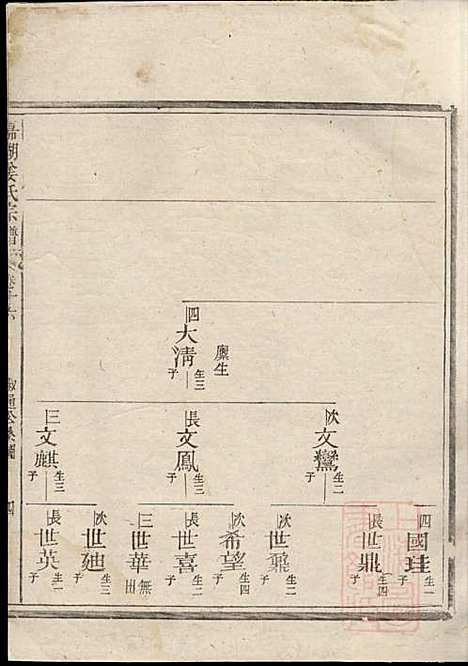 四
大淸
廩生
生三子
次
文鸞
生二子
長
文鳳
生三子
三
文麒
生三子
四
國珪
生一子
長
世鼎
生四子
次
世鼐
生二子
次
希望
生四子
長
世喜
生二子
三
世華
無出
次
世廸
生三子
長
世英
生一子
湖姜氏宗譜
四